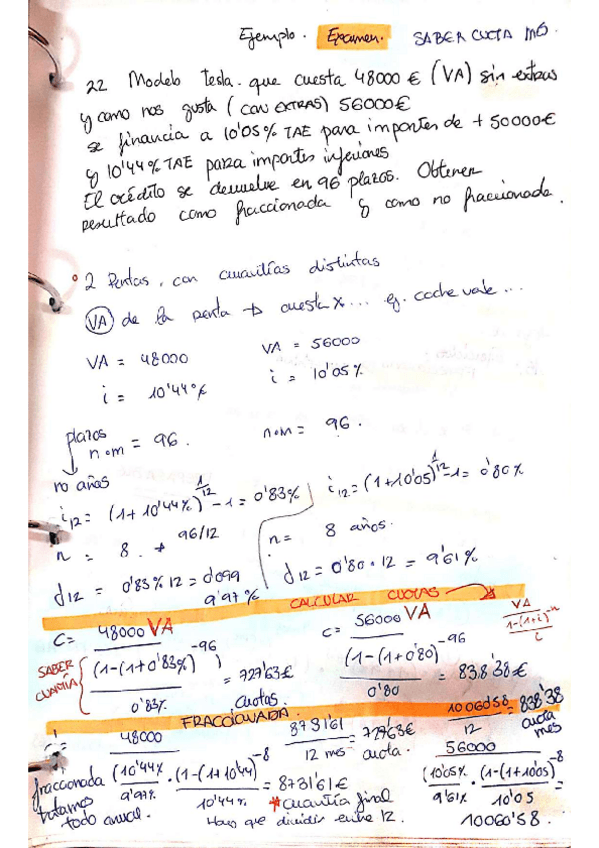 Ejemplo. Examen. SABER CUOTA MES.
22 Modelo tesla. que cuesta 48000 € (VA) sin extras
y como nos gusta (CON EXTRAS) 56000€
se financia a 10'05% TAE para importes de + 50000€
y 10'44% TAE para importes inferiores
El crédito se devuelve en 96 plazos. Obtener
resultado como fraccionada y como no fraccionada.
• 2 Rentas, con cuantías distintas
(VA) de la renta → cuesta x... ej. coche vale...
VA = 48000 VA = 56000
i = 10'44% i = 10'05%
plazos
n.m = 96. n.m = 96.
no años
i12 = (1+10'44%)^1/12 -1 = 0'83% i12 = (1+10'05)^1/12 -1 = 0'80%
n = 8. → 96/12 n = 8 años.
d12 = 0'83% 12 = 0'099 d12 = 0'80 · 12 = 9'61%
9'97%
CALCULAR CUOTAS → VA / (1-(1+i)^-n / i)
C = 48000 VA / ((1-(1+0'83%)^-96) / 0'83%) = 727'63€ cuotas.
C = 56000 VA / ((1-(1+0'80)^-96) / 0'80) = 838'38€
SABER CUANTÍA
FRACCIONADA.
48000 / (10'44% / 9'97% · (1-(1+10'44)^-8 / 10'44%)) = 8731'61€
8731'61 / 12 mes = 727'63€ cuota.
10060'58 / 12 = 838'38 cuota mes
56000 / (10'05% / 9'61% · (1-(1+10'05)^-8 / 10'05)) = 10060'58.
fraccionada tratamos todo anual.
* cuantía final
Hay que dividir entre 12.